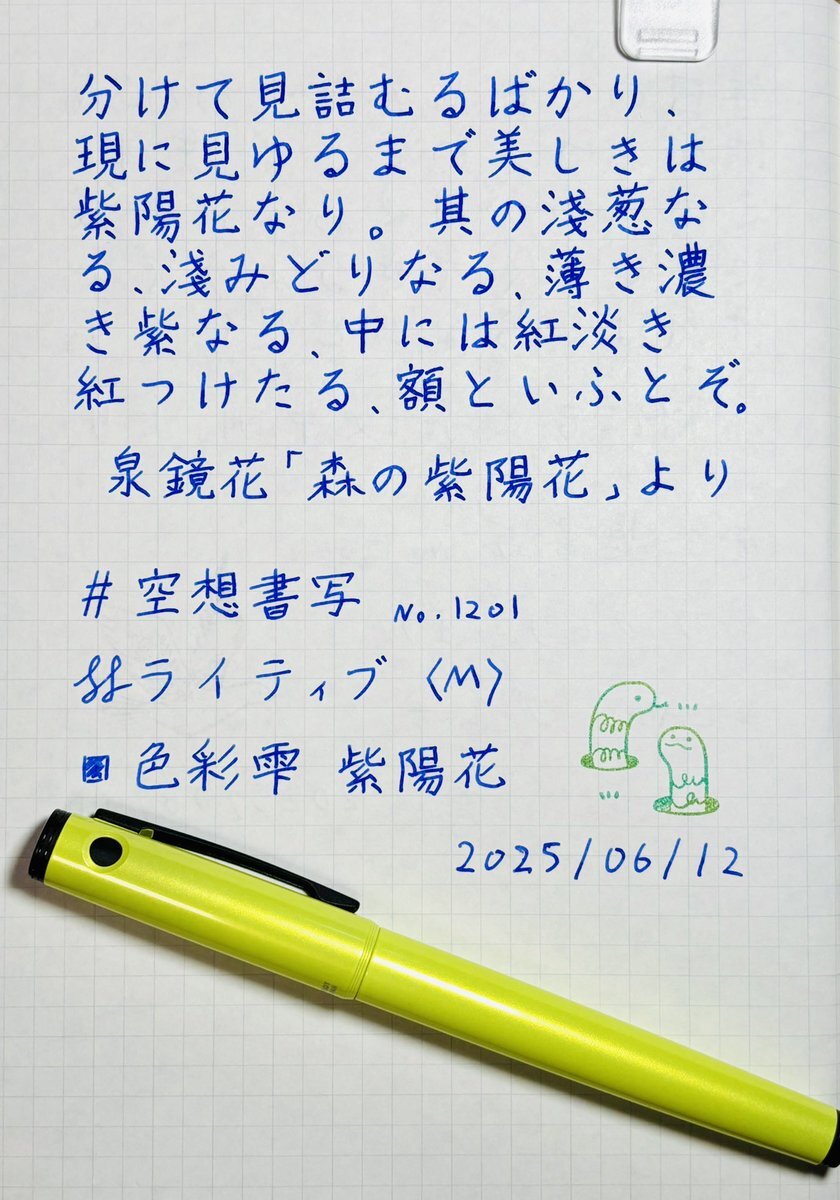 分けて見詰むるばかり、
現に見ゆるまで美しきは
紫陽花なり。其の淺葱な
る、淺みどりなる、薄き濃
き紫なる、中には紅淡き
紅つけたる、額といふとぞ。
泉鏡花「森の紫陽花」より
#空想書写 No.1201
ライティブ〈M〉
色彩雫 紫陽花
2025/06/12